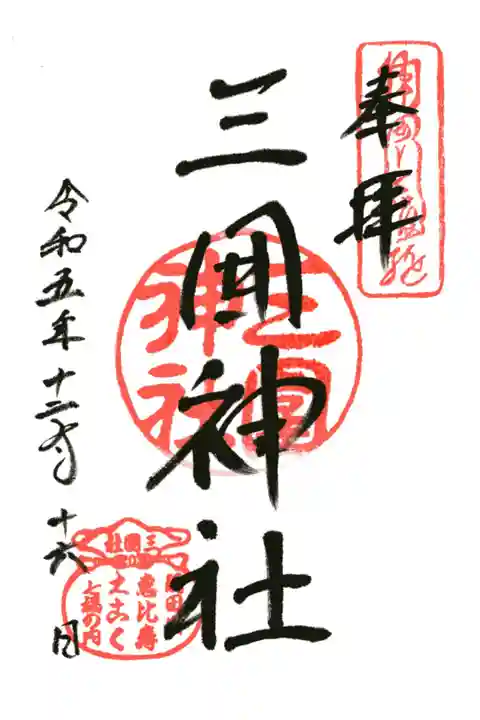 奉拝
三囲神社
三圍
神社
令和五年十二月十六日
三囲社
恵比寿
大こく
七福の内